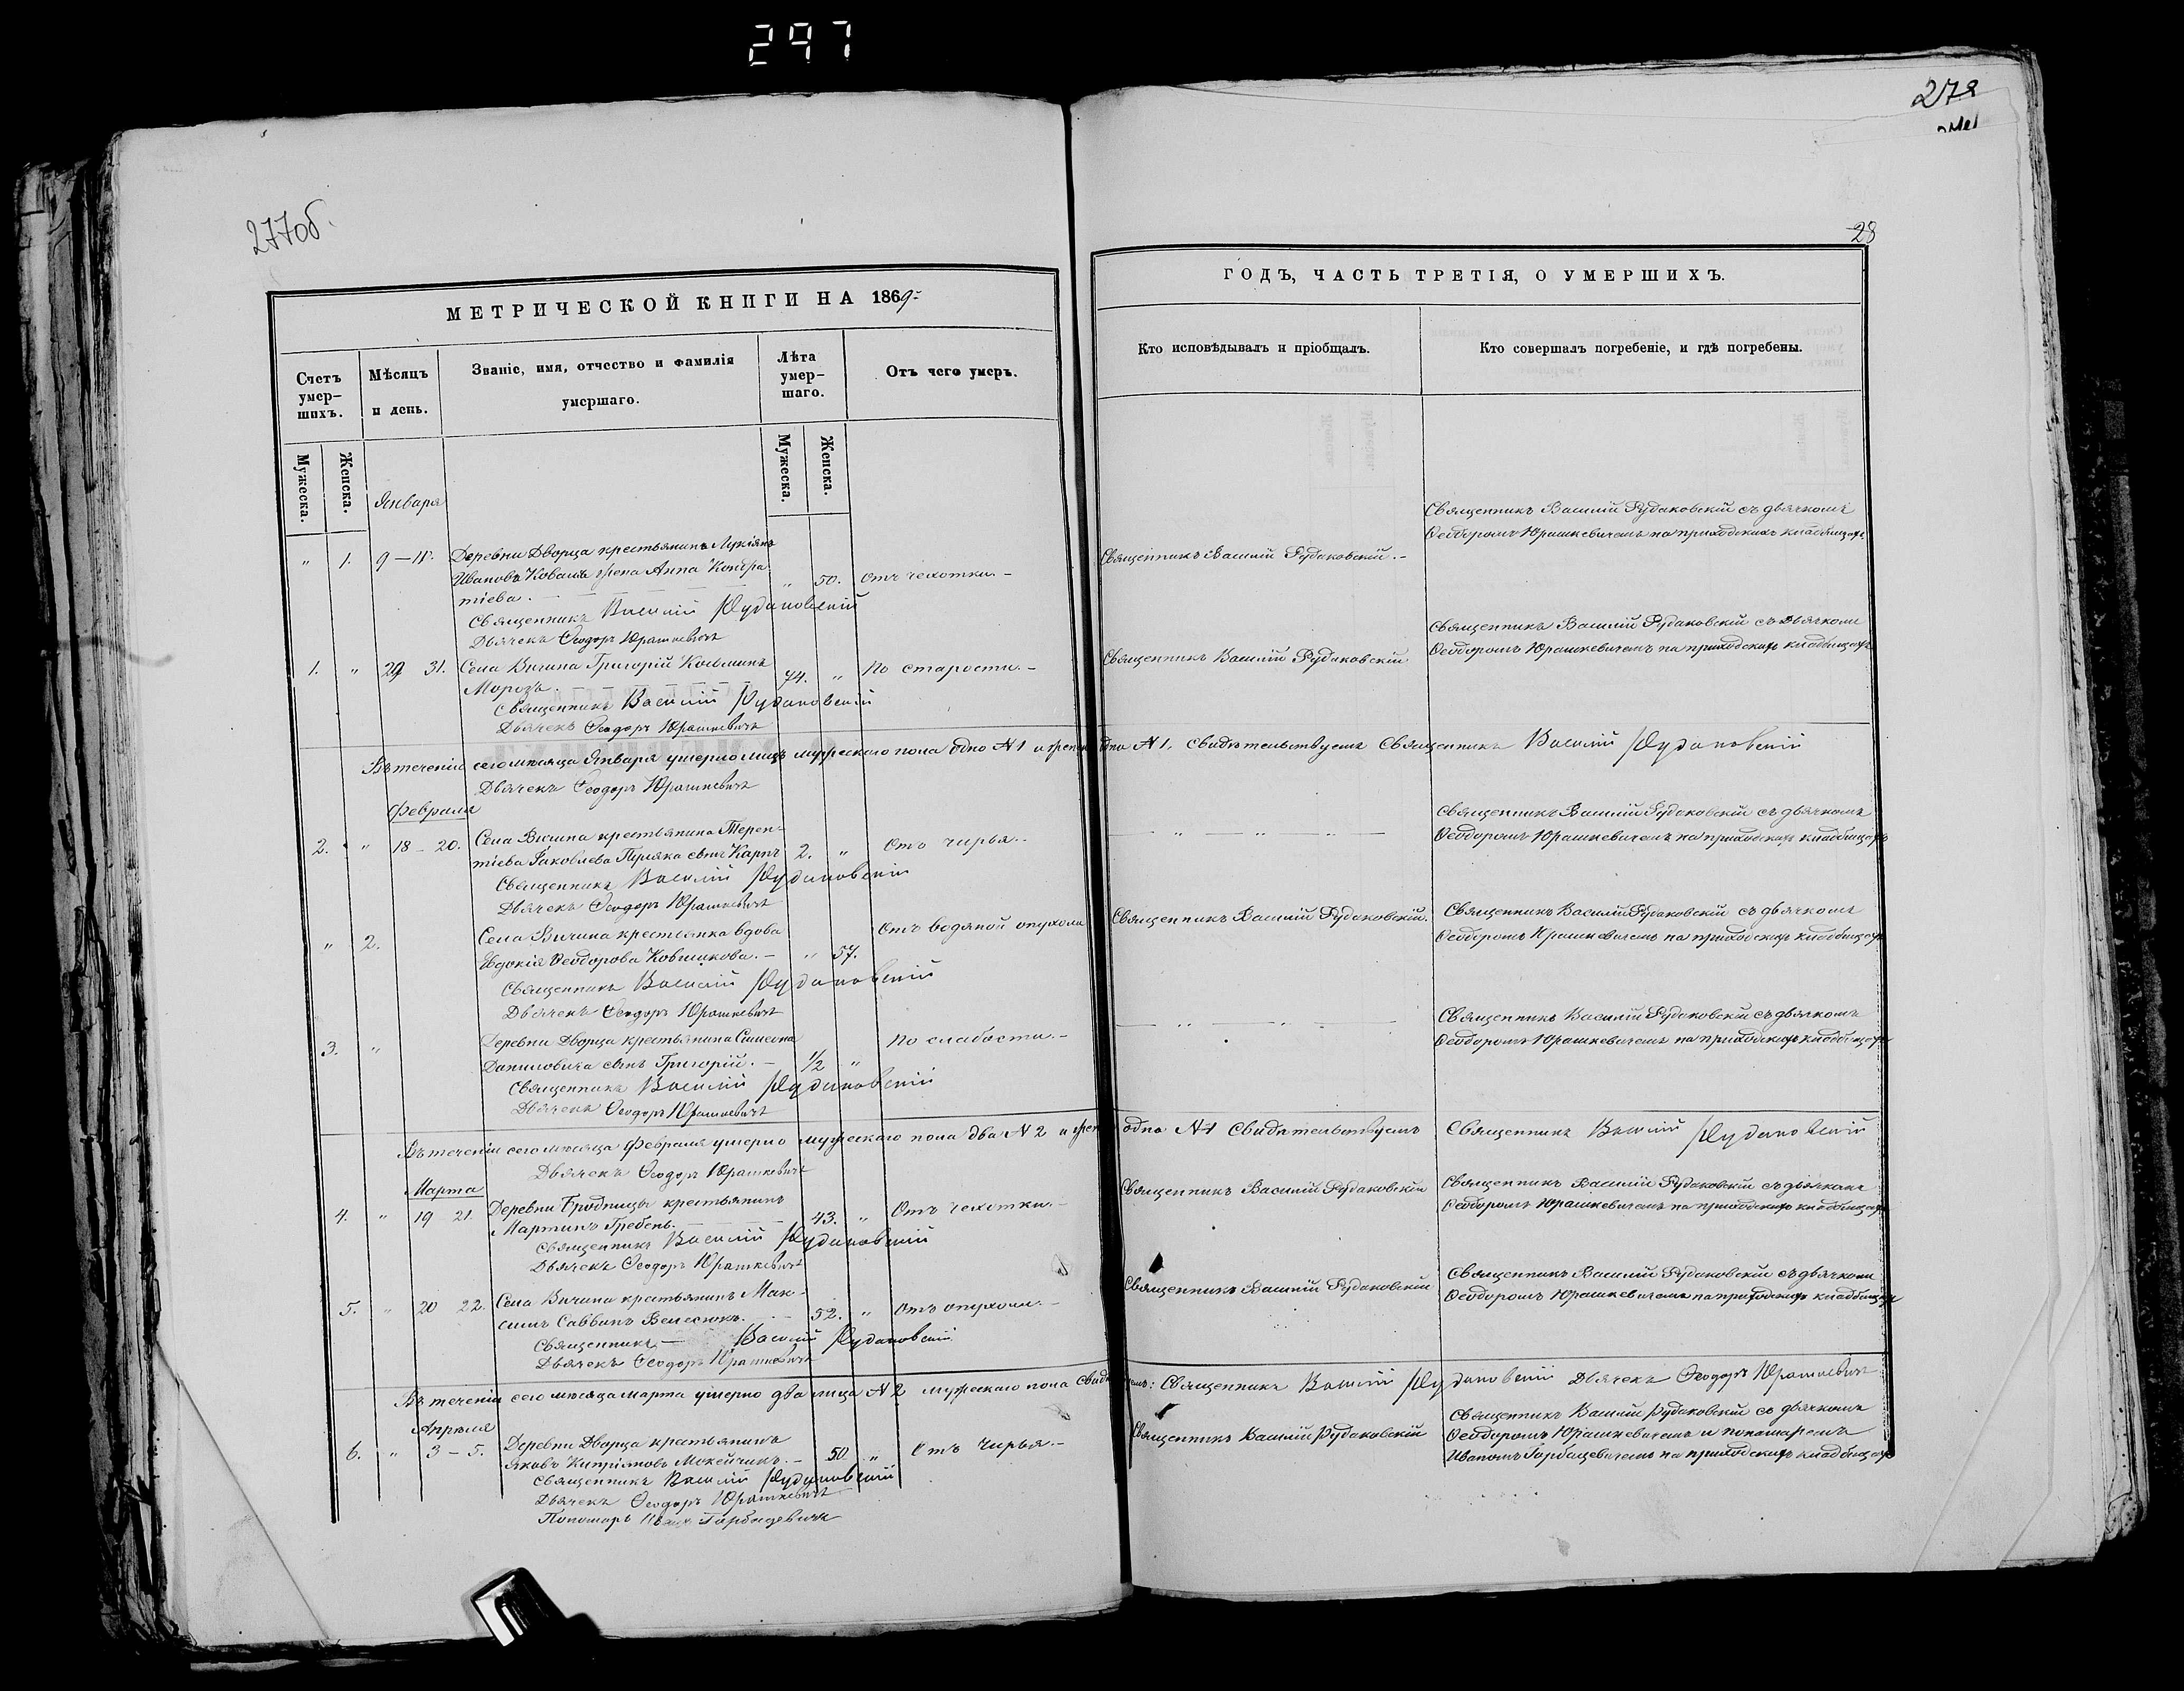 297
278
277об.
28
МЕТРИЧЕСКОЙ КНИГИ НА 1869
ГОДЪ, ЧАСТЬ ТРЕТІЯ, О УМЕРШИХЪ.
Счетъ умер-
шихъ.
Мѣсяцъ
и день.
Званіе, имя, отчество и фамилія
умершаго.
Лѣта
умер-
шаго.
Отъ чего умеръ.
Кто исповѣдывалъ и пріобщалъ.
Кто совершалъ погребеніе, и гдѣ погребены.
Мужеска.
Женска.
Мужеска.
Женска.
Января
" 1. 9 — 11. Деревни Дворца крестьянина Лукіяна
Иванова Коваля жена Анна Кондра-
тіева. — " 50. Отъ чехотки. —
Священникъ Василій Рудаковскій
Дьячекъ Ѳеодоръ Юрашкевичъ
Священникъ Василій Рудаковскій. —
Священникъ Василій Рудаковскій съ дьячкомъ
Ѳеодоромъ Юрашкевичемъ на приходскихъ кладбищахъ
1. " 29 31. Села Вичина Григорій Козьминъ
Морозъ. 74. " По старости. —
Священникъ Василій Рудаковскій
Дьячекъ Ѳеодоръ Юрашкевичъ
Священникъ Василій Рудаковскій
Священникъ Василій Рудаковскій съ дьячкомъ
Ѳеодоромъ Юрашкевичемъ на приходскихъ кладбищахъ
Въ теченіи сего мѣсяца Января умерло лицъ мужескаго пола одно № 1 и женска одно № 1. Свидѣтельствуемъ Священникъ Василій Рудаковскій
Дьячекъ Ѳеодоръ Юрашкевичъ
Февраля
2. " 18 — 20. Села Вичина крестьянина Терен-
тіева Іаковлева сынъ Карпъ 2. " Отъ чирья. —
Священникъ Василій Рудаковскій
Дьячекъ Ѳеодоръ Юрашкевичъ
— " — " — " —
Священникъ Василій Рудаковскій съ дьячкомъ
Ѳеодоромъ Юрашкевичемъ на приходскихъ кладбищахъ
" 2. Села Вичина крестьянка вдова
Евдокія Ѳеодорова. — " 57. Отъ водяной опухоли
Священникъ Василій Рудаковскій
Дьячекъ Ѳеодоръ Юрашкевичъ
Священникъ Василій Рудаковскій.
Священникъ Василій Рудаковскій съ дьячкомъ
Ѳеодоромъ Юрашкевичемъ на приходскихъ кладбищахъ
3. " Деревни Дворца крестьянина Симеона
Даниловича сынъ Григорій. — 1/2 " По слабости. —
Священникъ Василій Рудаковскій
Дьячекъ Ѳеодоръ Юрашкевичъ
— " — " — —
Священникъ Василій Рудаковскій съ дьячкомъ
Ѳеодоромъ Юрашкевичемъ на приходскихъ кладбищахъ
Въ теченіи сего мѣсяца Февраля умерло мужескаго пола два № 2 и женска одно № 1 Свидѣтельствуемъ Священникъ Василій Рудаковскій
Дьячекъ Ѳеодоръ Юрашкевичъ
Марта
4. " 19 21. Деревни Бродницы крестьянинъ
Мартинъ Гребень. 43. " Отъ чехотки. —
Священникъ Василій Рудаковскій
Дьячекъ Ѳеодоръ Юрашкевичъ
Священникъ Василій Рудаковскій
Священникъ Василій Рудаковскій съ дьячкомъ
Ѳеодоромъ Юрашкевичемъ на приходскихъ кладбищахъ
5. " 20 22. Села Вичина крестьянинъ Мак-
симъ Саввинъ Велесюкъ. — 52. " Отъ опухоли. —
Священникъ — Василій Рудаковскій
Дьячекъ Ѳеодоръ Юрашкевичъ
Священникъ Василій Рудаковскій
Священникъ Василій Рудаковскій съ дьячкомъ
Ѳеодоромъ Юрашкевичемъ на приходскихъ кладбищахъ
Въ теченіи сего мѣсяца Марта умерло два лица № 2 мужескаго пола: Священникъ Василій Рудаковскій Дьячекъ Ѳеодоръ Юрашкевичъ
Апрѣля
6. " 3 — 5. Деревни Дворца крестьянинъ
Яковъ Кипріановъ Мокейчикъ. — 50 " Отъ чирья. —
Священникъ Василій Рудаковскій
Дьячекъ Ѳеодоръ Юрашкевичъ
Пономарь Иванъ Горбацевичъ
Священникъ Василій Рудаковскій
Священникъ Василій Рудаковскій съ дьячкомъ
Ѳеодоромъ Юрашкевичемъ и пономаремъ
Иваномъ Горбацевичемъ на приходскихъ кладбищахъ